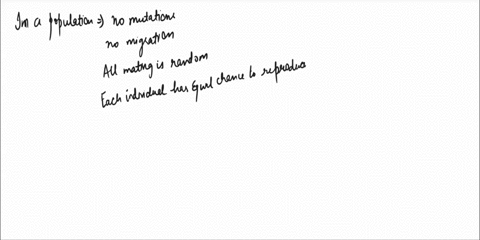 In a population => no mutations
no migration
All mating is random
Each individual has equal chance to reproduce